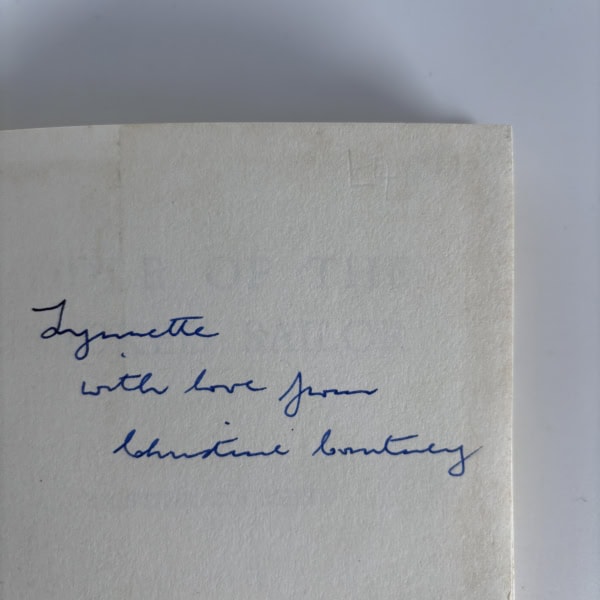 Lynnette
with love from
Christine Courtney